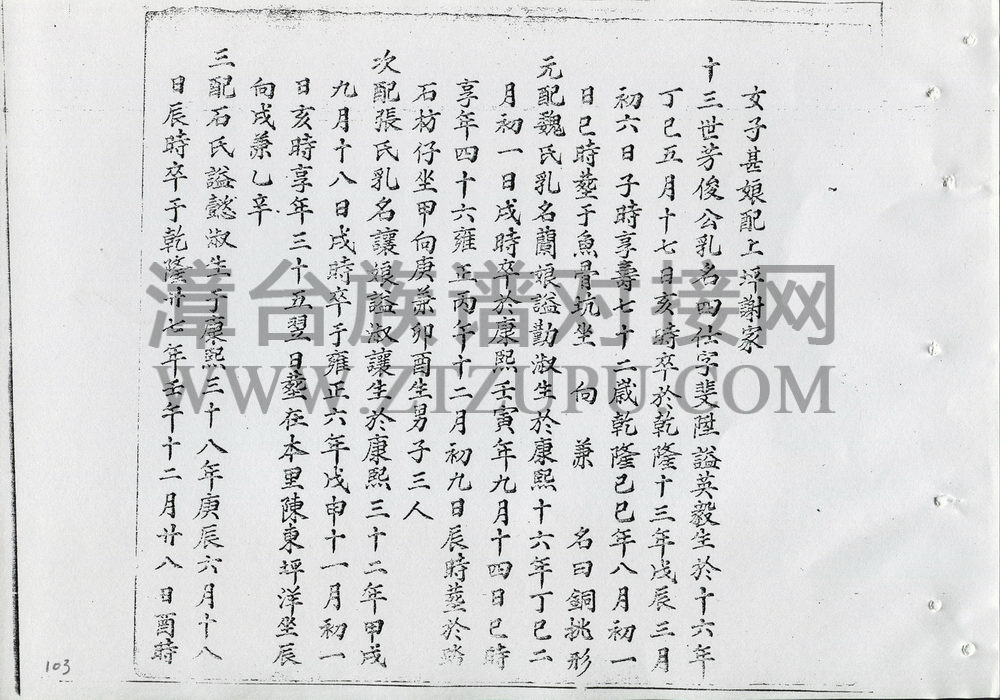 女子甚娘配上坪謝家
十三世芳俊公乳名四仕字斐陞謚英毅生於十六年
丁巳五月十七日亥時卒於乾隆十三年戊辰三月
初六日子時享壽七十二歲乾隆己巳年八月初一
日巳時塟于魚骨坑坐 向 兼 名曰銅挑形
元配魏氏乳名蘭娘謚勤淑生於康熙十六年丁巳二
月初一日戌時卒於康熙壬寅年九月十四日巳時
享年四十六雍正丙午十二月初九日辰時塟於路
石枋仔坐甲向庚兼卯酉生男子三人
次配張氏乳名讓娘謚淑讓生於康熙三十二年甲戌
九月十八日戌時卒于雍正六年戊申十一月初一
日亥時享年三十五翌日塟在本里陳東坪洋坐辰
向戌兼乙辛
三配石氏謚懿淑生于康熙三十八年庚辰六月十八
日辰時卒于乾隆廿七年壬午十二月廿八日酉時
103
漳台族谱对接网
WWW.ZTZUPU.COM